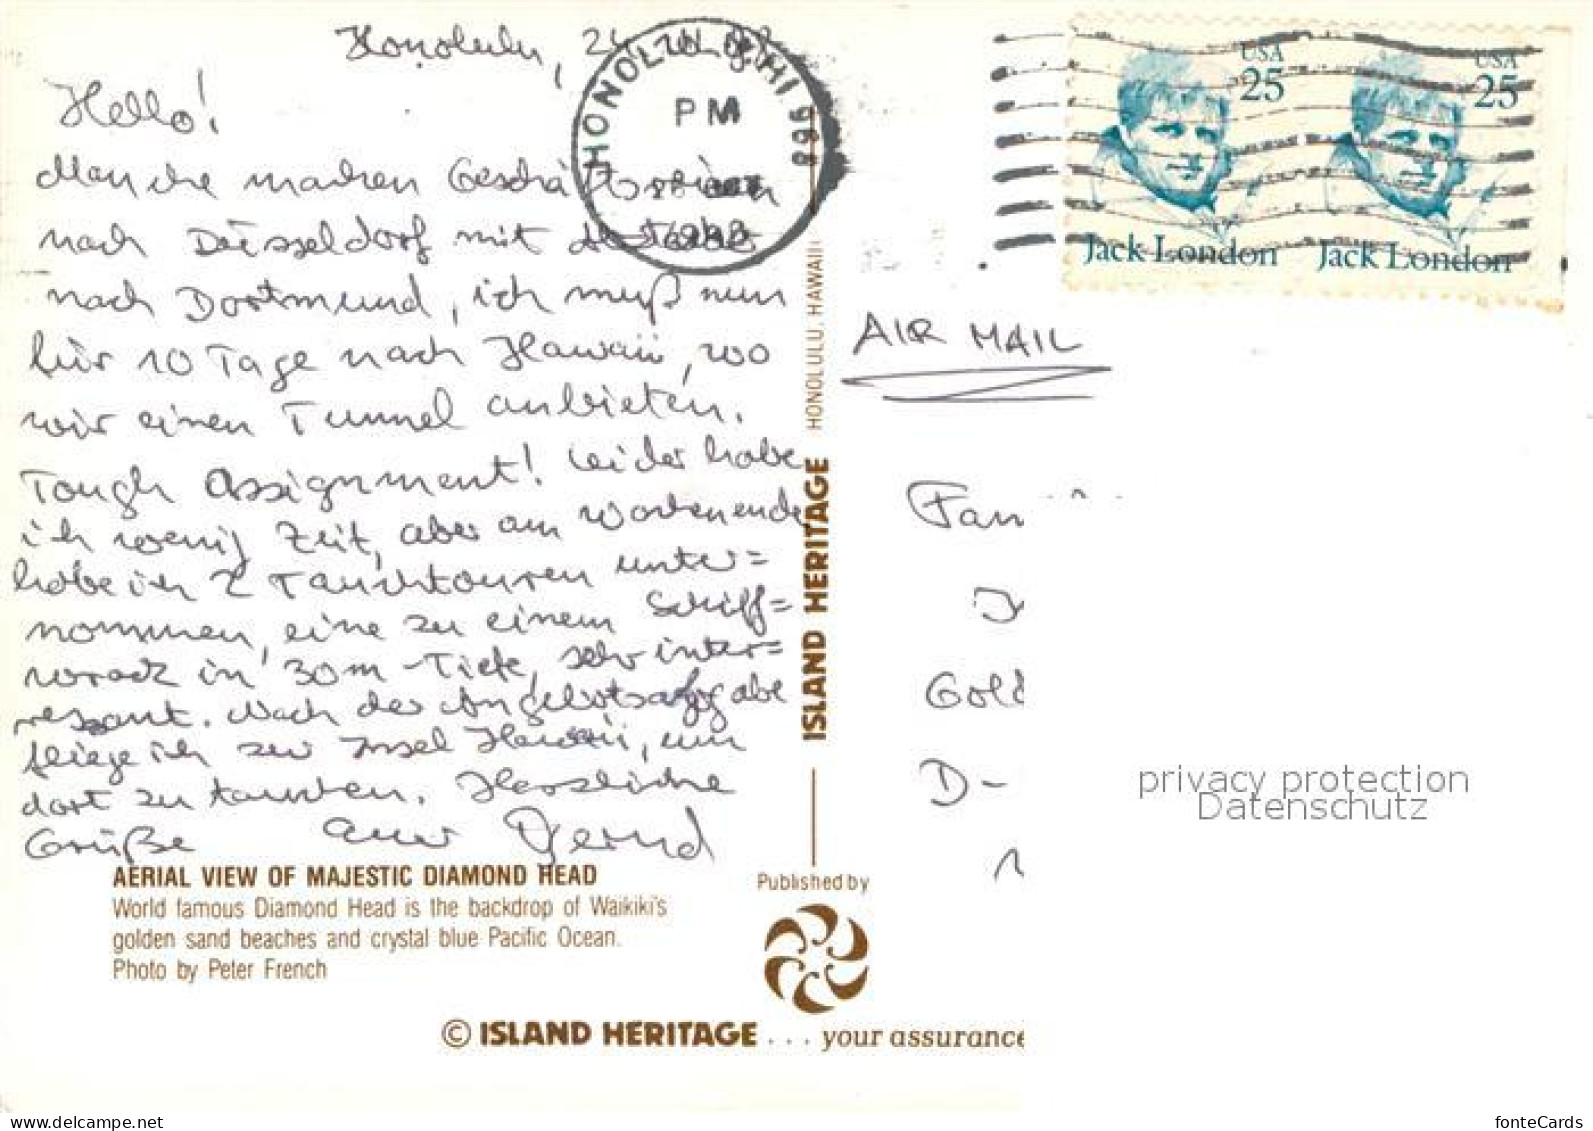 Honolulu,
HONOLULU, HI 968
PM
1988
USA
25
USA
25
Jack London
Jack London
Hello!
Manche machen Geschäftsreisen
nach Düsseldorf mit
nach Dortmund, ich muß nun
für 10 Tage nach Hawaii, wo
wir einen Tunnel anbieten.
Tough Assignment! Leider habe
ich wenig Zeit, aber am Wochenende
habe ich 2 Tauchtouren unter=
nommen, eine zu einem Schiff=
wrack in 30m-Tiefe, sehr inter=
ressant. Nach der Angebotsabgabe
fliege ich zur Insel Hawaii, um
dort zu tauchen. Herzliche
Grüße Euer Bernd
AIR MAIL
Fam
Gold
D-
HONOLULU, HAWAII
ISLAND HERITAGE
privacy protection
Datenschutz
AERIAL VIEW OF MAJESTIC DIAMOND HEAD
World famous Diamond Head is the backdrop of Waikiki's
golden sand beaches and crystal blue Pacific Ocean.
Photo by Peter French
Published by
© ISLAND HERITAGE . . . your assurance
fonteCards